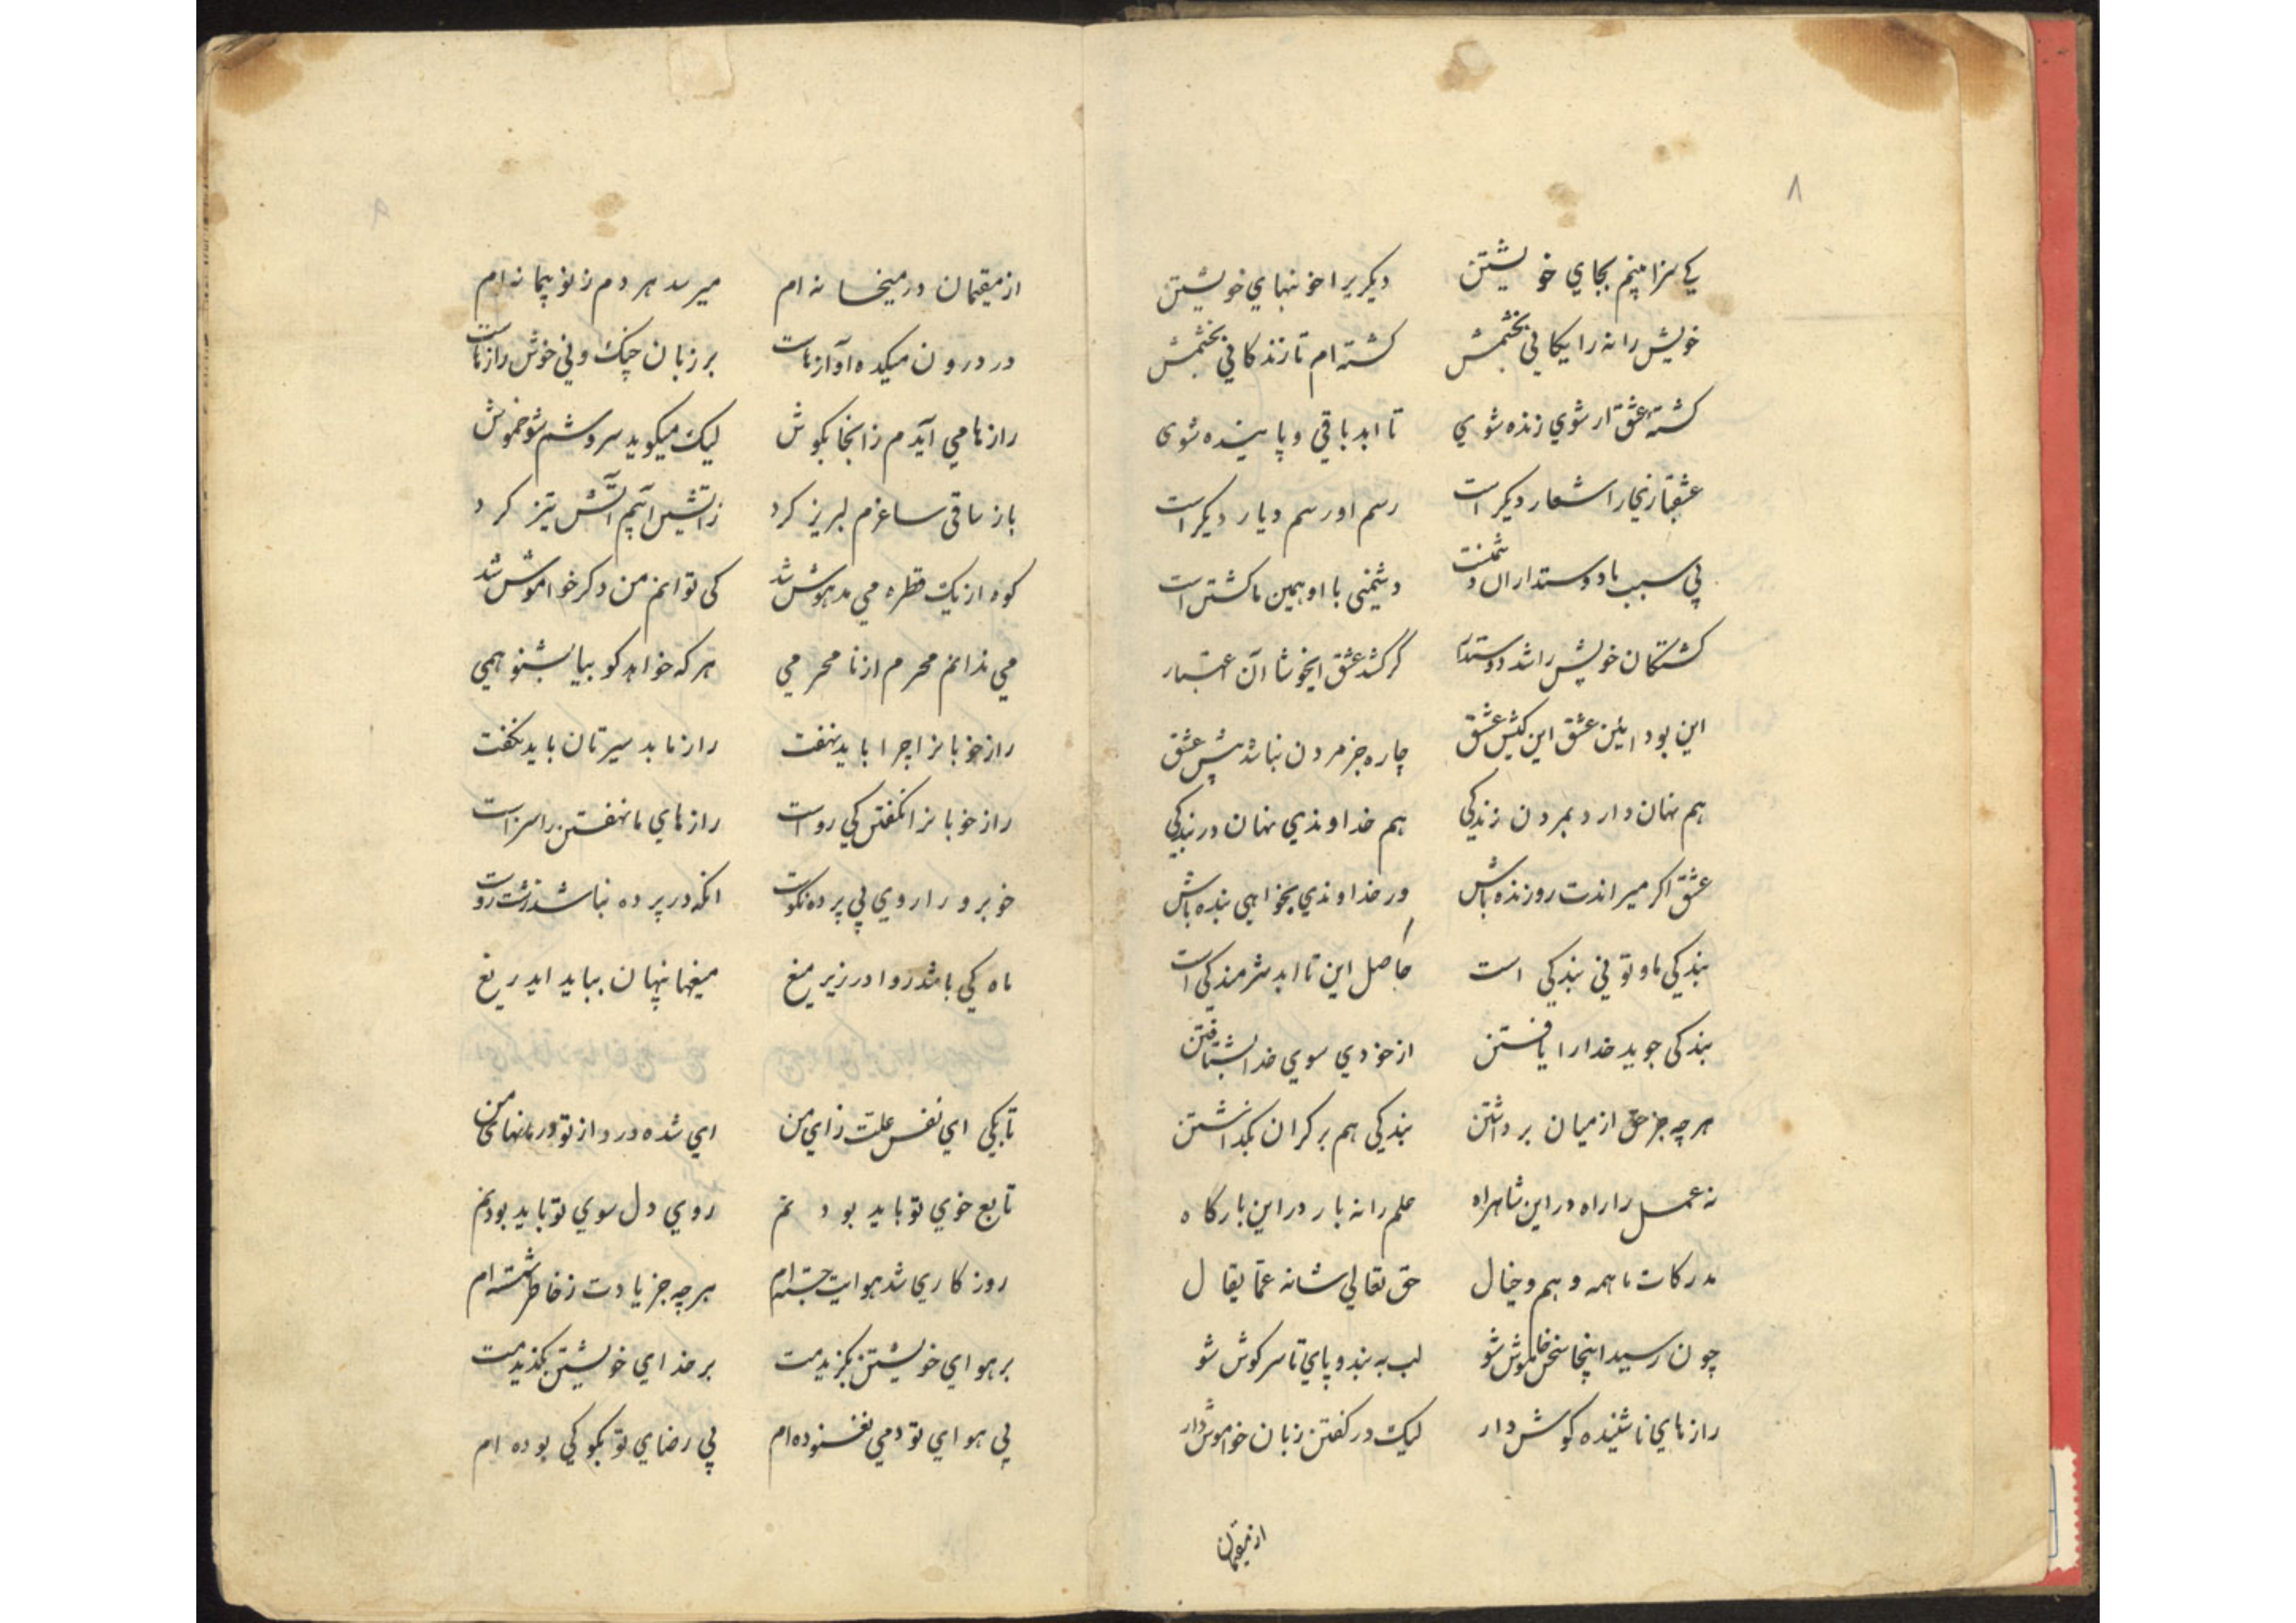 ۸
کی سزا بینم بجای خویشتن دیکریرا خونبهای خویشتن
خویش را نه رایکانی بخشمش کشته ام تا زندکانی بخشمش
کشته عشق ار شوی زنده شوی تا ابد باقی و پاینده شوی
عشقبازیجا را شعار دیکر است رسم او رسم دیار دیکر است
بی سبب با دوستداران دشمنست دشمنی با او همین ما کشتن است
کشتکان خویش را شد دوستدار کر کشد عشق ایخوشا آن اعتبار
این بود ائین عشق این کیش عشق چاره جز مردن نباشد پیش عشق
هم نهان دارد بمردن زندکی هم خداوندی نهان در بندکی
عشق اکر میراندت رو زنده باش ور خداوندی بخواهی بنده باش
بندکی ما و تو نی بندکی است حاصل این تا ابد شرمندکی است
بندکی جوید خدا را یافتن از خودی سوی خدا بشتافتن
هر چه جز حق از میان برداشتن بندکی هم بر کران بکذاشتن
نه عمل را راه در این شاهراه علم را نه بار در این بارکاه
مدرکات ما همه وهم و خیال حق تعالی شانه عما یقال
چون رسید اینجا سخن خاموش شو لب به بند و پای تا سر کوش شو
رازهای ناشنیده کوش دار لیک در کفتن زبان خواموش دار
از مقیمان
۹
از مقیمان در میخانه ام میرسد هر دم ز نو پیمانه ام
در درون میکده آوازهاست بر زبان چنک و نی خوش رازهاست
رازها می آیدم زانجا بکوش لیک میکوید سروشم شو خموش
باز ساقی ساغرم لبریز کرد زاتشین آبم آتش تیز کرد
کوه از یک قطره می مدهوش شد کی توانم من دکر خواموش شد
می ندانم محرم از نامحرمی هر که خواهد کو بیا بشنو همی
راز خوبانرا چرا باید نهفت راز ما بد سیرتان باید نکفت
راز خوبانرا نکفتن کی رواست رازهای ما نهفتن را سزاست
خوبرو را روی بی پرده نکوست انکه در پرده نباشد زشت روست
ماه کی باشد روا در زیر میغ میغها پنهان بباید ایدریغ
تا بکی ای نفس علت زای من ای شده درد از تو درمانهای من
تابع خوی تو باید بودنم روی دل سوی تو باید بودنم
روزکاری شد هوایت جسته ام هرچه جز یادت ز خاطر شسته ام
بر هوای خویشتن بکزیدمت بر خدای خویشتن بکزیدمت
بی هوای تو دمی نغنوده ام بی رضای تو بکو کی بوده ام